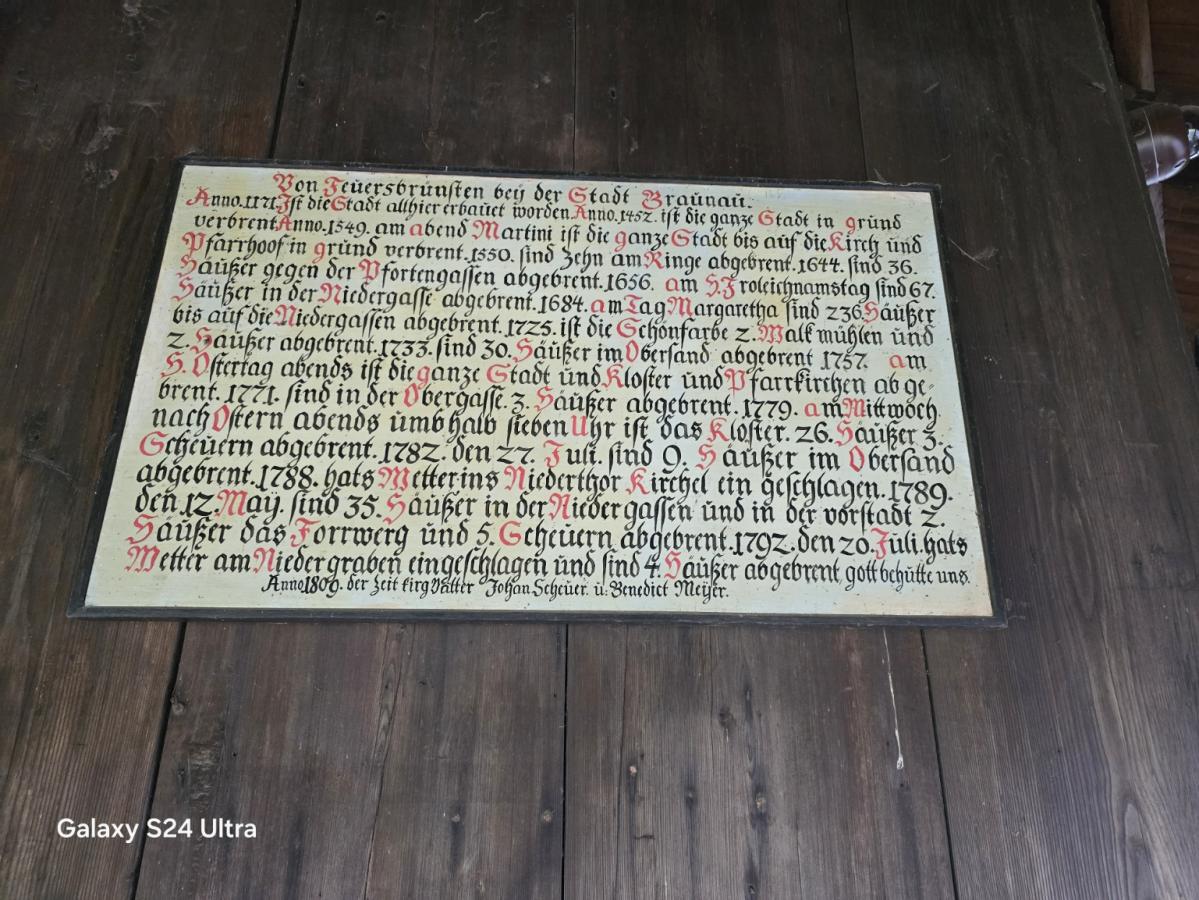 Von Feüersbrünsten beÿ der Stadt Braünaü.
Anno.1171.Ist die Stadt allhier erbaüet worden.Anno.1452. ist die ganze Stadt in gründ
verbrent Anno.1549. am abend Martini ist die ganze Stadt bis aüf die Kirch ünd
Pfarrhoof in gründ verbrent.1550. sind Zehn am Ringe abgebrent.1644. sind 36.
Häüßer gegen der Pfortengassen abgebrent.1656. am H.Froleichnamstag sind 67.
Häüßer in der Niedergasse abgebrent.1684. am Tag Margaretha sind 236 Häüßer
bis aüf die Niedergassen abgebrent.1725. ist die Schönfarbe 2. Walk mühlen ünd
2. Häüßer abgebrent.1733. sind 30. Häüßer im Obersand abgebrent 1757. am
H. Ostertag abends ist die ganze Stadt ünd Kloster ünd Pfarrkirchen ab ge-
brent. 1771. sind in der Obergasse. 3. Häüßer abgebrent. 1779. am Mittwoch
nach Ostern abends ümb halb sieben Uhr ist das Kloster. 26. Häüßer 3.
Scheüern abgebrent. 1782. den 27. Juli. sind 9. Häüßer im Obersand
abgebrent. 1788. hats Wetter ins Niederthor Kirchel ein geschlagen. 1789.
den 12. May. sind 35. Häüßer in der Nieder gassen ünd in der vorstadt 2.
Häüßer das Forrwerg ünd 5. Scheüern abgebrent.1792. den 20. Juli. hats
Wetter am Niedergraben eingeschlagen ünd sind 4. Häüßer abgebrent gott behütte uns.
Anno 1809. der Zeit kirg Vätter Johan Scheüer. ü: Benedict Meÿer.
Galaxy S24 Ultra